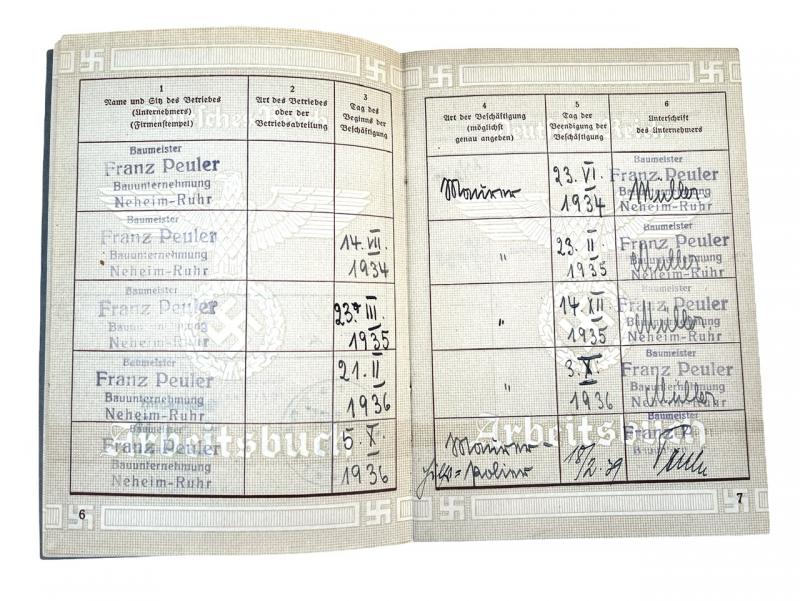 1
Name und Sitz des Betriebes
(Unternehmers)
(Firmenstempel)
2
Art des Betriebes
oder der
Betriebsabteilung
3
Tag des
Beginns der
Beschäftigung
Baumeister
Franz Peuler
Bauunternehmung
Neheim-Ruhr
Baumeister
Franz Peuler
Bauunternehmung
Neheim-Ruhr
14. VII.
1934
Baumeister
Franz Peuler
Bauunternehmung
Neheim-Ruhr
23. III.
1935
Baumeister
Franz Peuler
Bauunternehmung
Neheim-Ruhr
21. II
1936
Baumeister
Franz Peuler
Bauunternehmung
Neheim-Ruhr
5. X.
1936
Arbeitsbuch
6
4
Art der Beschäftigung
(möglichst
genau angeben)
5
Tag der
Beendigung der
Beschäftigung
6
Unterschrift
des Unternehmers
Deutsches Reich
Maurer
23. VI.
1934
Baumeister
Franz Peuler
Bauunternehmung
Neheim-Ruhr
Müller
"
23. II
1935
Baumeister
Franz Peuler
Bauunternehmung
Neheim-Ruhr
Müller
"
14. XII
1935
Baumeister
Franz Peuler
Bauunternehmung
Neheim-Ruhr
Müller
"
3. X.
1936
Baumeister
Franz Peuler
Bauunternehmung
Neheim-Ruhr
Müller
Maurer-
Hilfs=polier
18/2. 39
Baumeister
Franz P
Bauunter
Neheim-Ruhr
Arbeitsbuch
7